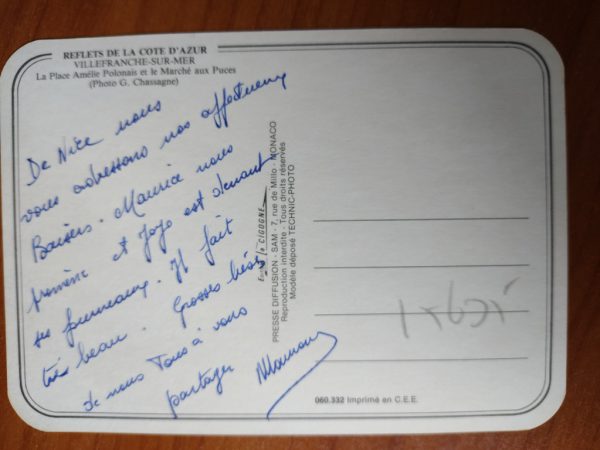 REFLETS DE LA COTE D'AZUR
VILLEFRANCHE-SUR-MER
La Place Amélie Polonais et le Marché aux Puces
(Photo G. Chassagne)
De Nice nous
vous adressons nos affectueux
Baisers. Maurice nous
promène et Jojo est devant
ses fourneaux. Il fait
très beau. Grosses bises
de nous Tous à vous
partager
Editions la CIGOGNE
PRESSE DIFFUSION - SAM - 7, rue de Millo - MONACO
Reproduction interdite - Tous droits réservés
Modèle déposé TECHNIC-PHOTO
060.332 Imprimé en C.E.E.